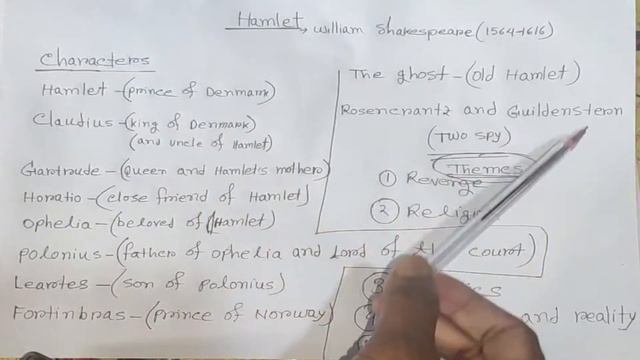 Hamlet → William Shakespeare (1564-1616)
Characters
Hamlet - (prince of Denmark)
Claudius - (king of Denmark)
(and uncle of Hamlet)
Gartrude - (queen and Hamlet's mother)
Horatio - (close friend of Hamlet)
Ophelia - (beloved of Hamlet)
Polonius - (father of ophelia and Lord of courot)
Learotes - (son of polonius)
Fortinbras - (prince of Norway)
The ghost - (old Hamlet)
Rosencrantz and Guildenstern
(Two spy)
Themes
① Revenge
②
③
and reality